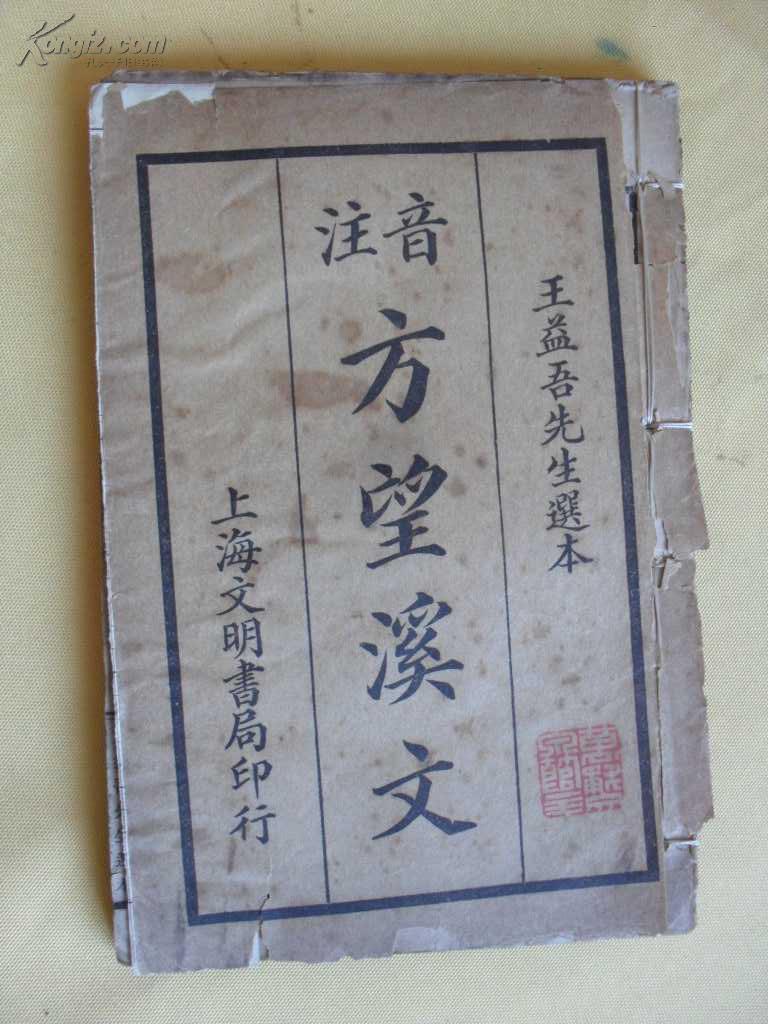 王益吾先生選本
音注
方望溪文
上海文明書局印行
Kongfz.com